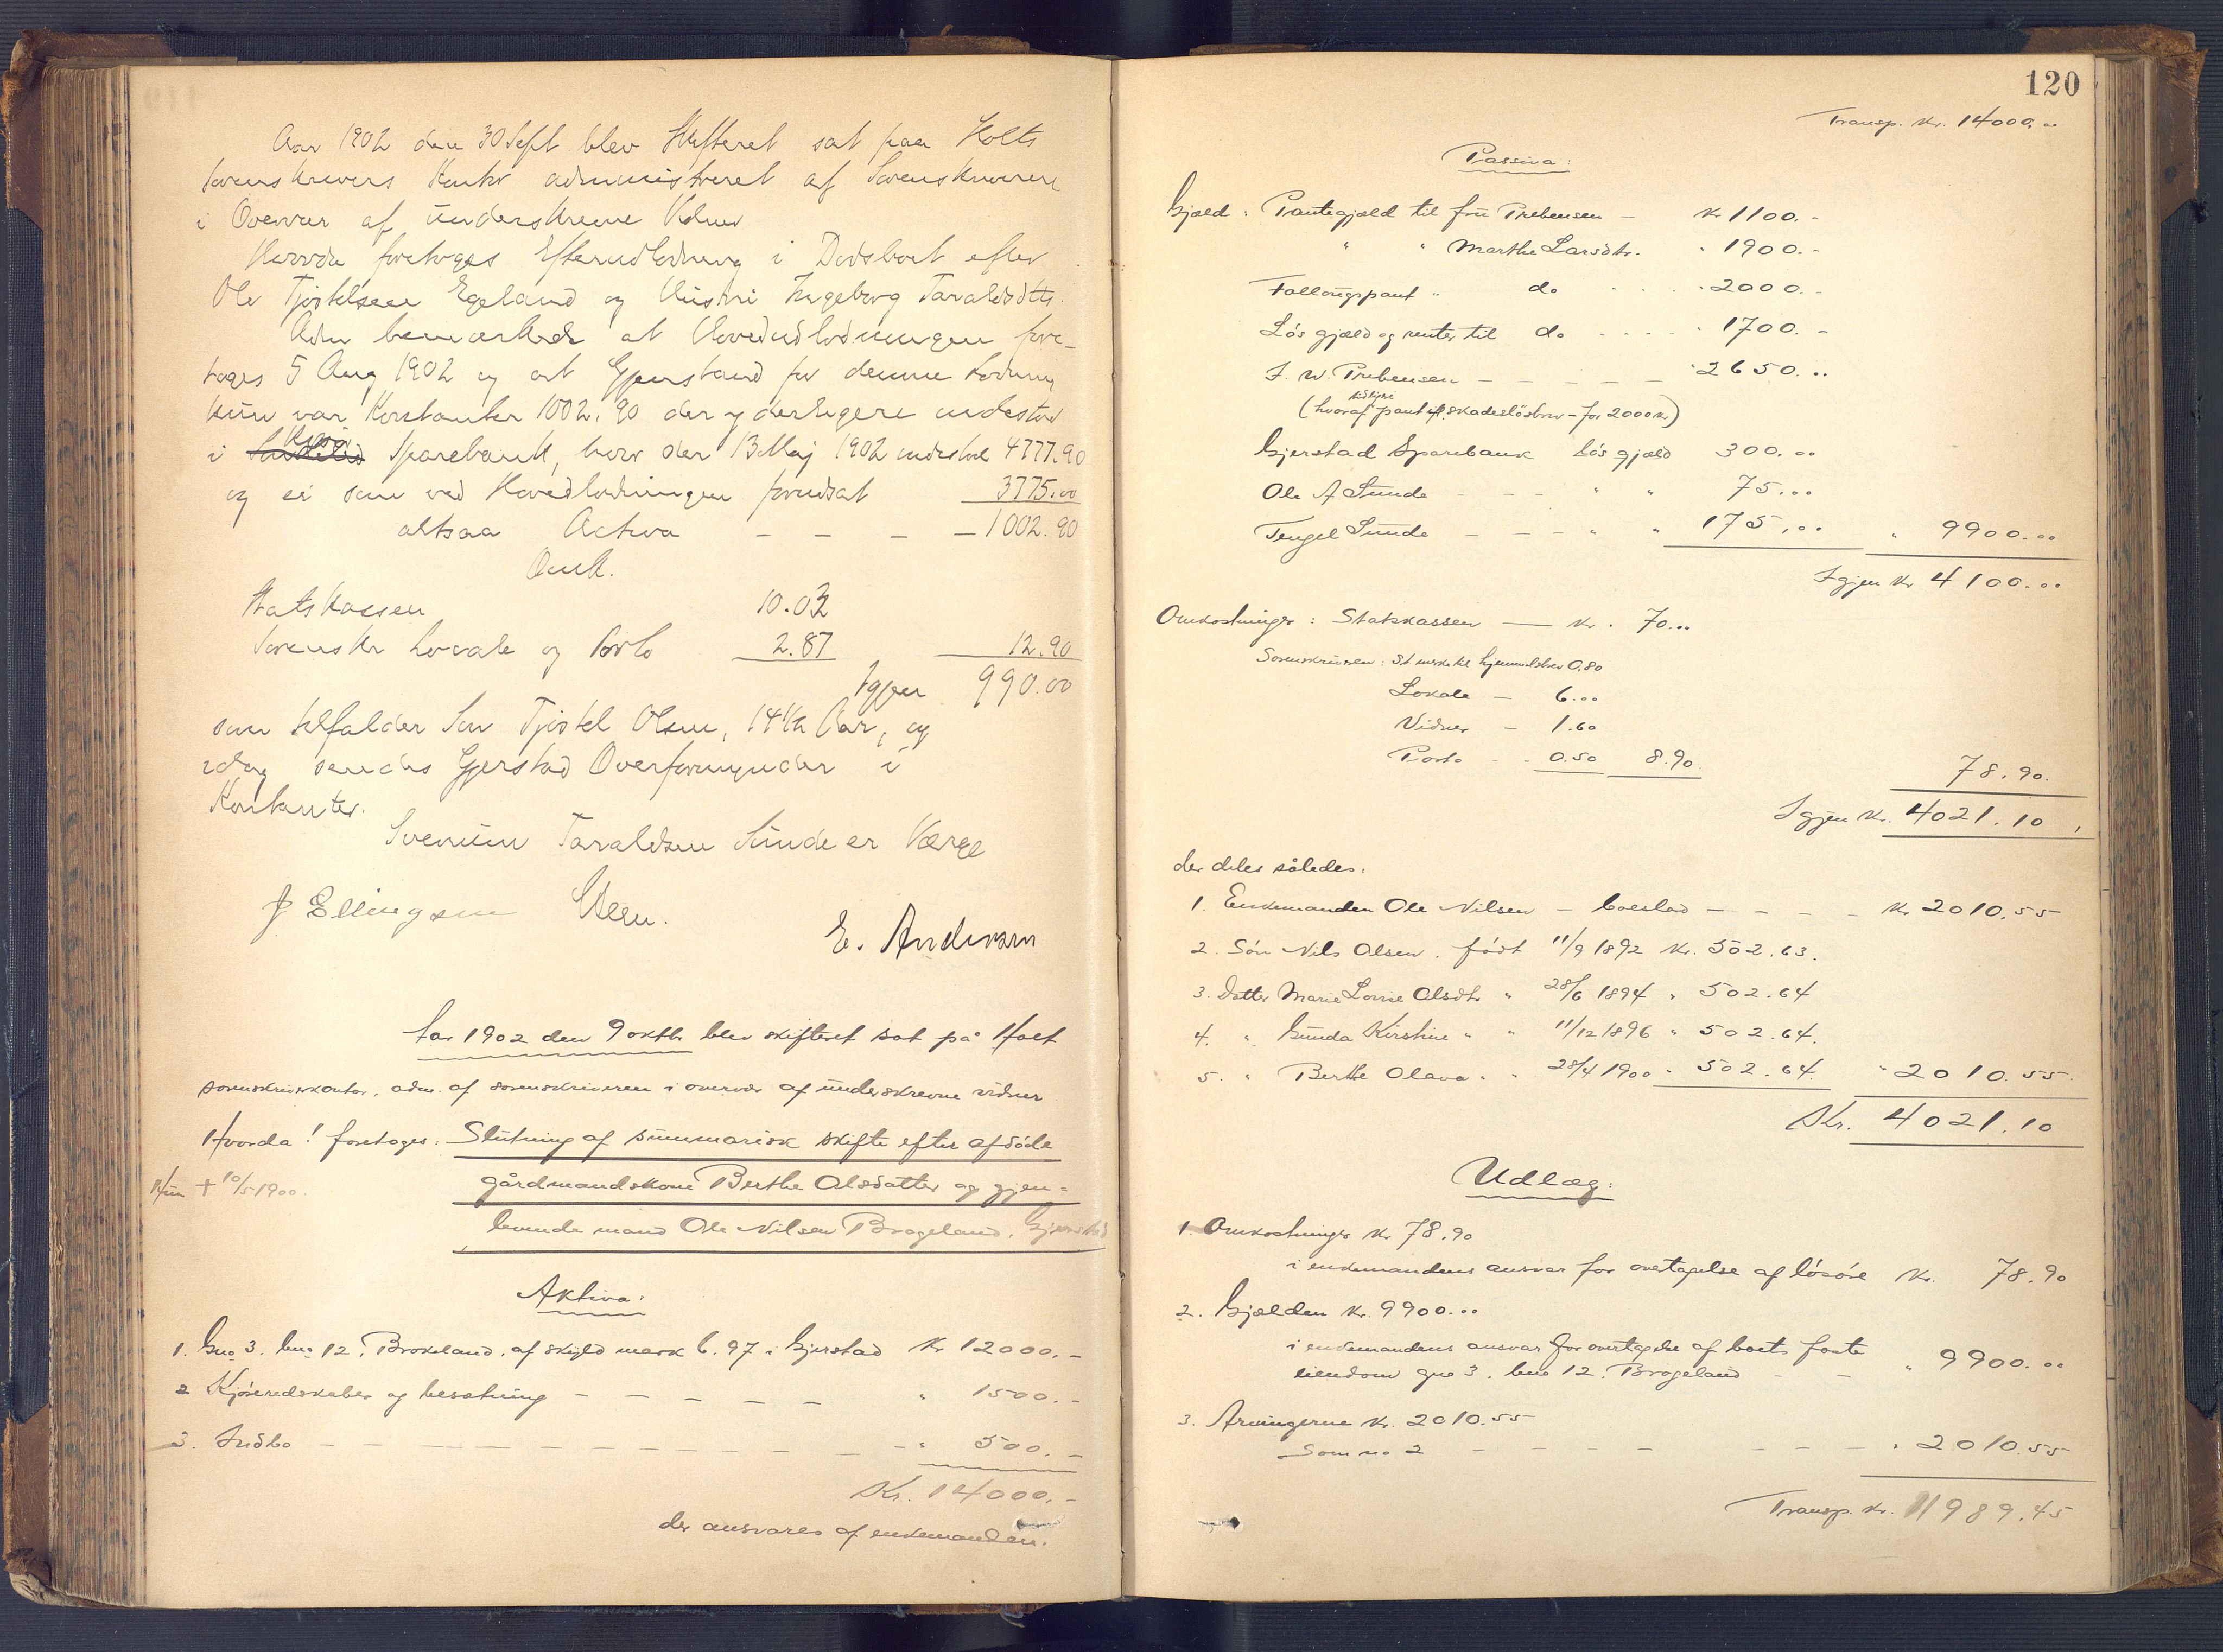 Aar 1902 den 30 Sept blev Skifteret sat paa Holts
Sorenskrivers Kontor administreret af Sorenskriveren
i Overvær af underskrevne Vidner
Hvorda foretoges Efterudlodning i Dødsboet efter
Ole Tjøstelsen Egeland og Hustru Ingeborg Taraldsdtr.
bemærkedes at Hovedudlodningen fore-
toges 5 Aug 1902 og at Gjenstand for denne Lodning
kun var Kontanter 1002.90 der yderligere indestod
i Sparebank, hvor der 13 Maj 1902 indestod 4777.90
og ei som ved Hovedlodningen forudsat 3775.00
altsaa Activa - - - - 1002.90
Omk.
Statskassen 10.03
Sorenskr Locale og Porto 2.87 12.90
Igjen 990.00
som tilfalder Søn Tjøstel Olsen, 14½ Aar, og
idag sendes Gjerstad Overformynderi i
Kontanter.
Severin Taraldsen Sunde er Værge
J Ellingsen Steen.
E. Andersen
Aar 1902 den 9 oktbr. blev skifteret sat på Holt
sorenskriverkontor, adm. af sorenskriveren i overvær af underskrevne vidner
Hvorda! foretoges: Slutning af summarisk skifte efter afdöde
Hun † 10/5 1900. gårdmandskone Berthe Olsdatter og gjen-
levende mand Ole Nilsen Brogeland, Gjerstad
Aktiva:
1. Gno 3. bno 12. Brokeland, af skyld mark 6.97 i Gjerstad Kr 12000.-
2 Kjöreredskaber og besætning - - - - - " 1500.-
3. Indbo - - - - - - - - " 500.-
Kr. 14000.-
der ansvares af enkemanden.
120
Transp. Kr. 14000,00
Passiva:
Gjæld: Pantegjæld til fru Prebensen - Kr 1100.-
" " Marthe Larsdtr. " 1900.-
Follougspant " do . . . " 2000.-
Lös gjæld og renter til do . . . " 1700.-
J. W. Prebensen - - - - - " 2650...
(hvoraf pant skadeslösbrev - for 2000 kr)
Gjerstad Sparebank Lös gjæld 300...
Ole A Sunde - - - " " 75...
Tengel Sunde - - - " " 175,.. " 9900...
Igjen Kr 4100...
Omkostninger: Statskassen - Kr. 70...
Sorenskriveren: hjemmelsbrev 0.80
Lokale - 6...
Vidner - 1.60
Porto - - 0.50 8.90. 78.90.
Igjen Kr. 4021.10
der deles således:
1. Enkemanden Ole Nilsen - boeslod - - - - Kr 2010.55
2. Sön Nils Olsen. födt 11/9 1892 Kr. 502.63.
3. Datter Marie Lovise Olsdtr " 28/6 1894 " 502.64
4. " Gunda Kirstine " " 11/12 1896 " 502.64.
5. " Berthe Olava " " 28/4 1900 " 502.64. " 2010.55.
Kr. 4021.10
Udlæg:
1 Omkostninger Kr 78.90
i enkemandens ansvar for overtagelse af lösöre Kr. 78.90
2. Gjælden Kr. 9900...
i enkemandens ansvar for overtagelse af boets faste
eiendom gno 3, bno 12. Brogeland - - " 9900...
3. Arvingerne Kr. 2010.55
Som no 2 - - - - - - - " 2010.55
Transp. Kr. 11989.45